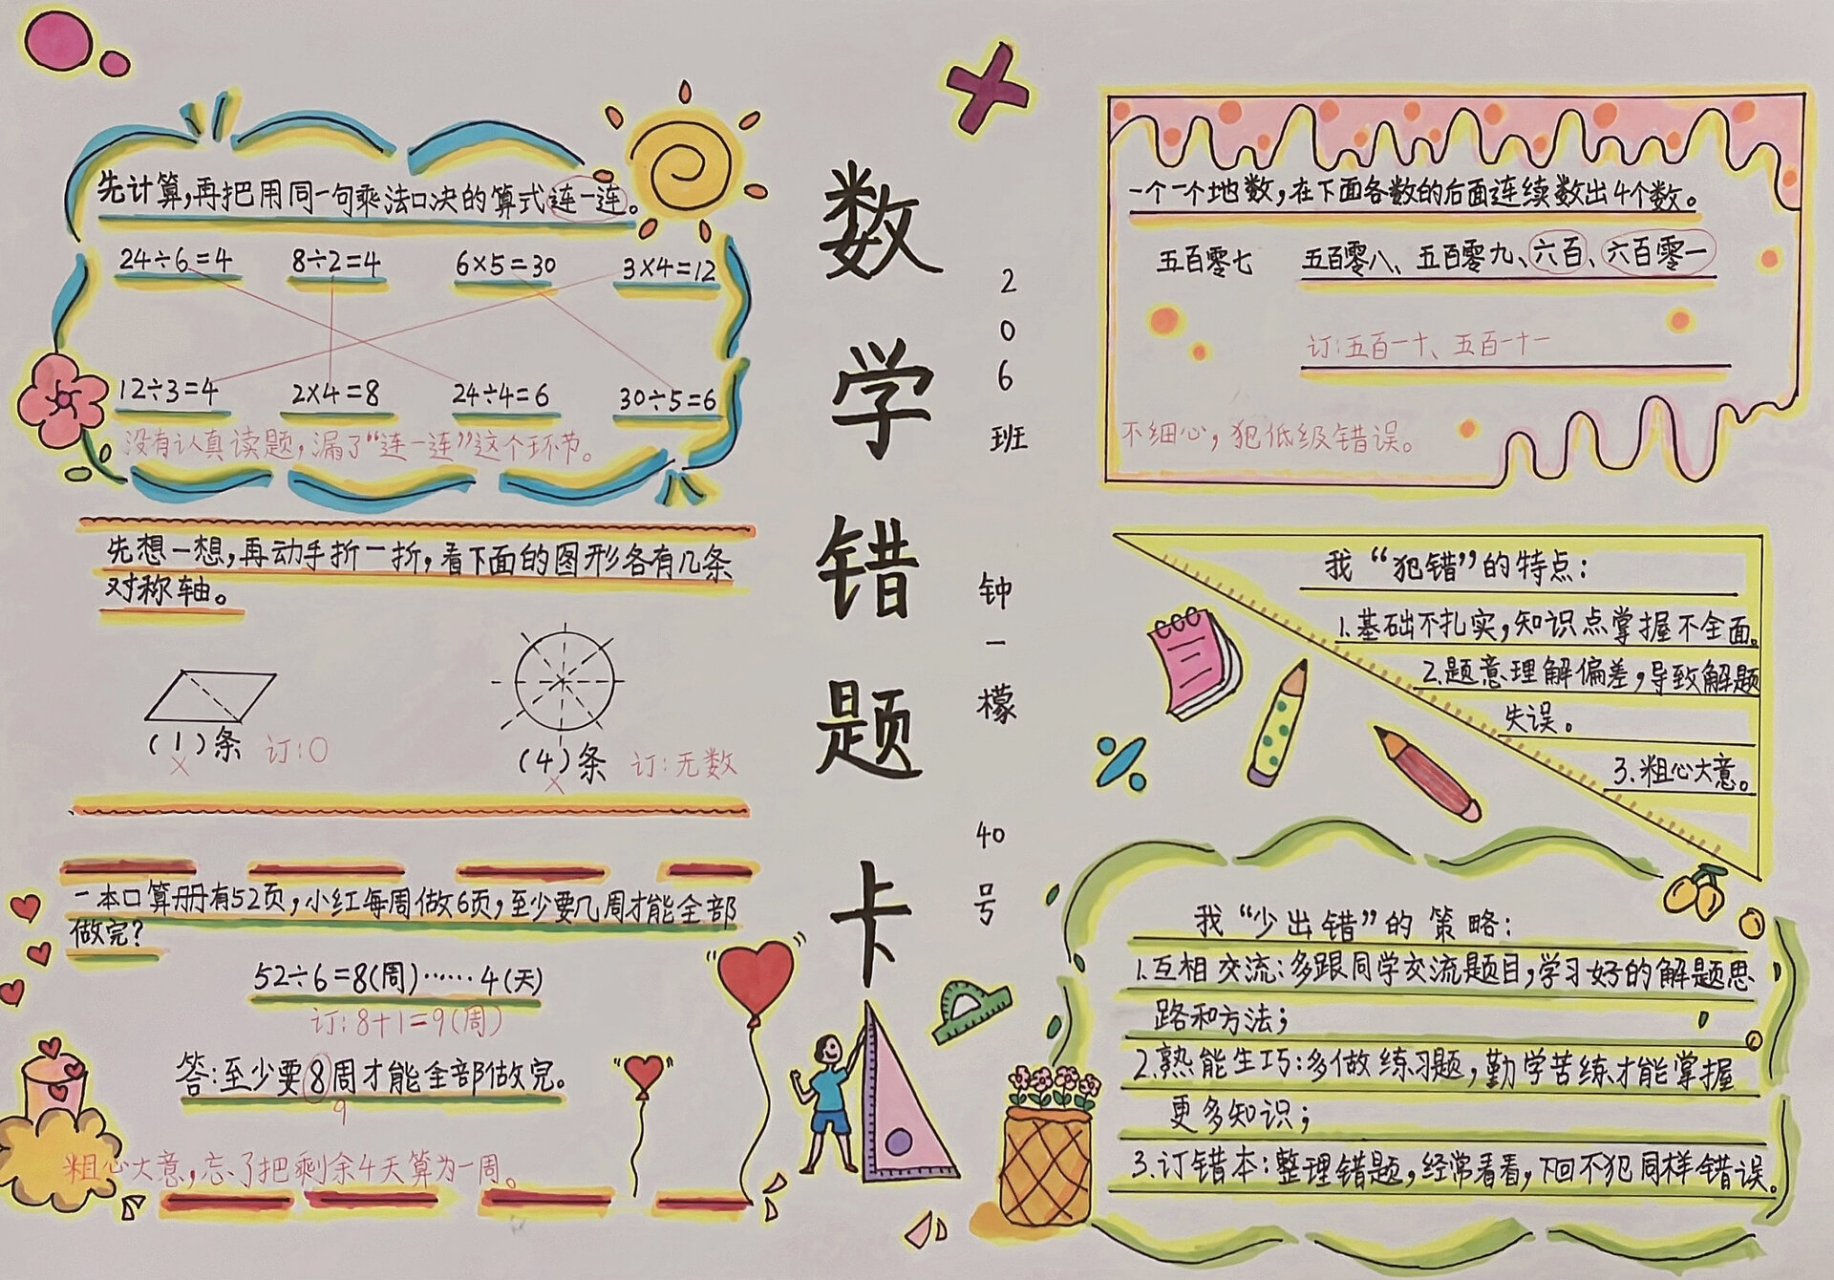 先计算,再把用同一句乘法口决的算式连一连。
24÷6=4 8÷2=4 6×5=30 3×4=12
12÷3=4 2×4=8 24÷4=6 30÷5=6
没有认真读题,漏了“连一连”这个环节。
先想一想,再动手折一折,看下面的图形各有几条
对称轴。
(1)条 订:0
(4)条 订:无数
一本口算册有52页,小红每周做6页,至少要几周才能全部
做完?
52÷6=8(周)……4(天)
订:8+1=9(周)
答:至少要8周才能全部做完。
9
粗心大意,忘了把剩余4天算为一周。
数学错题卡
206班 钟一檬 40号
一个一个地数,在下面各数的后面连续数出4个数。
五百零七 五百零八、五百零九、六百、六百零一
订:五百一十、五百一十一
不细心,犯低级错误。
我“犯错”的特点:
1.基础不扎实,知识点掌握不全面。
2.题意理解偏差,导致解题
失误。
3.粗心大意。
我“少出错”的策略:
1.互相交流:多跟同学交流题目,学习好的解题思
路和方法;
2.熟能生巧:多做练习题,勤学苦练才能掌握
更多知识;
3.订错本:整理错题,经常看看,下回不犯同样错误。